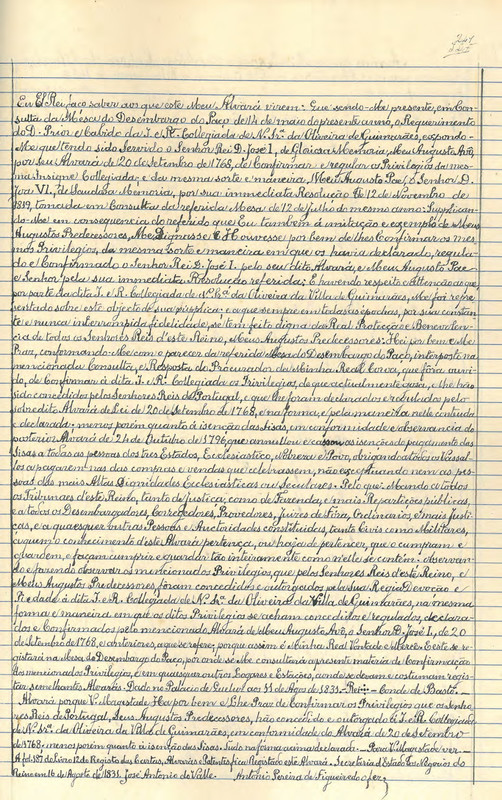 Eu El Rei faço saber aos que este Meu Alvará virem: Que sendo-Me presente, em Con-
sulta da Mesa do Desembargo do Paço de 14 de maio do presente anno, o Requerimento
do D. Prior e Cabido da I. e R. Collegiada de N. Srª. da Oliveira de Guimarães, expondo-
Me que tendo sido Servido o Senhor Rei D. José I, de Gloriosa Memoria, Meu Augusto Avô,
por seu Alvará de 20 de Setembro de 1768, de Confirmar e regular os Privilegios da mes-
ma Insigne Collegiada; e da mesma sorte e maneira Meu Augusto Pae, o Senhor D.
Joao VI, de Saudosa Memória, por sua immediata Resolução de 12 de Novembro de
1819, tomada em Consulta da referida Mesa de 12 de julho do mesmo anno: Supplican-
do-Me em consequencia do referido que Eu tambem á imitação e exemplo de Meus
Augustos Predecessores, Me Dignasse e Houvesse por bem de lhes Confirmar os mes-
mos Privilegios, da mesma sorte e maneira em que os havia declarado, regula-
do e Confirmado o Senhor Rei D. José I. pelo seu dito Alvará, e Meu Augusto Pae
e Senhor pela sua immediata Resolução referida; E havendo respeito e Attenção ao que,
por parte da dita I. e R. Collegiada de N. Srª. da Oliveira da Villa de Guimarães, Me foi repre-
sentado sobre este objecto de sua supplica; e a que sempre em todas as epochas, por sua constan-
te e nunca interrompida fidelidade, se tem feito digna da Real Protecção e Benevolen-
cia de todos os Senhores Reis d'este Reino, Meus Augustos Predecessores: Hei por bem e Me
Praz, conformando-Me com o parecer da referida Mesa do Desembargo do Paço, interposto na
mencionada Consulta, e Resposta do Procurador da Minha Real Coroa, que fôra ouvi-
do, de Confirmar á dita I. e R. Collegiada os Privilegios, de que actualmente gosa, e lhe hão
sido concedidos pelos Senhores Reis de Portugal, e que lhe foram declarados e regulados pelo
sobredito Alvará de Lei de 20 de Setembro de 1768, e na forma, e pela maneira n'elle contiuda
e declarada: menos porém quanto á isenção das Sisas, em conformidade e observancia do
posterior Alvará de 24 de Outubro de 1796, que annullou e cassou as isenções do pagamento das
Sisas a todas as pessoas dos tres Estados, Ecclesiastico, Nobreza e Povo, obrigando a todos os Vassal-
los a pagarem nas das compras e vendas que celebrassem, não exceptuando nem as pes-
soas das mais Altas Dignidades Ecclesiasticas ou Seculares. Pelo que: Mando a todos
os Tribunaes d'este Reino, tanto de justiça, como de Fazenda, e mais Repartições publicas,
e a todos os Desembargadores, Corregedores, Provedores, Juizes de Fóra, Ordinarios, e mais Justi-
ças, e a quaesquer outras Pessoas e Auctoridades constituidas, tanto Civis como Militares,
a quem o conhecimento d'este Alvará pertença, ou haja de pertencer, que o cumpram e
guardem, e façam cumprir e guardar tão inteiramente como n'elle se contém: Observan-
do e fazendo observar os mencionados Privilegios, que pelos Senhores Reis d'este Reino, e
Meus Augustos Predecessores, foram concedidos e outorgados pela sua Regia Devoção e
Piedade á dita I. e R. Collegiada de N. Srª. da Oliveira da Villa de Guimarães, na mesma
forma e maneira em que os ditos Privilegios se acham concedidos e regulados, declara-
dos e Confirmados pelo mencionado Alvará de Meu Augusto Avô, o Senhor D. José I., de 20
de Setembro de 1768, e anteriores, a que se refere; porque assim é Minha Real Vontade e Mercê. E este se re-
gistará na Mesa do Desembargo do Paço, por onde se Me consultou a presente materia de Confirmação
dos mencionados Privilegios, e em quaesquer outros Logares e Estações, aonde se devam e costumam regis-
tar semelhantes Alvarás. Dado no Palacio de Queluz aos 31 de Agosto de 1831. — Rei. — Conde de Basto. —
Alvará porque V. Magestade Ha por bem e Lhe Praz de Confirmar os Privilegios que os Senho-
res Reis de Portugal, Seus Augustos Predecessores, hão concedido e outorgado á I. e R. Collegiada
de N. Srª. da Oliveira da Villa de Guimarães, em conformidade do Alvará de 20 de Setembro
de 1768; menos porém quanto á isenção das Sisas. Tudo na forma acima declarada. — Para V. Magestade ver. —
A fol. 187 do Livro 12 de Registo das Cartas, Alvarás e Patentes fica Registado este Alvará. Secretaria d'Estado dos Negocios do
Reino em 16 de Agosto de 1831. José Antonio do Valle. Antonio Pereira de Figueiredo a fez.